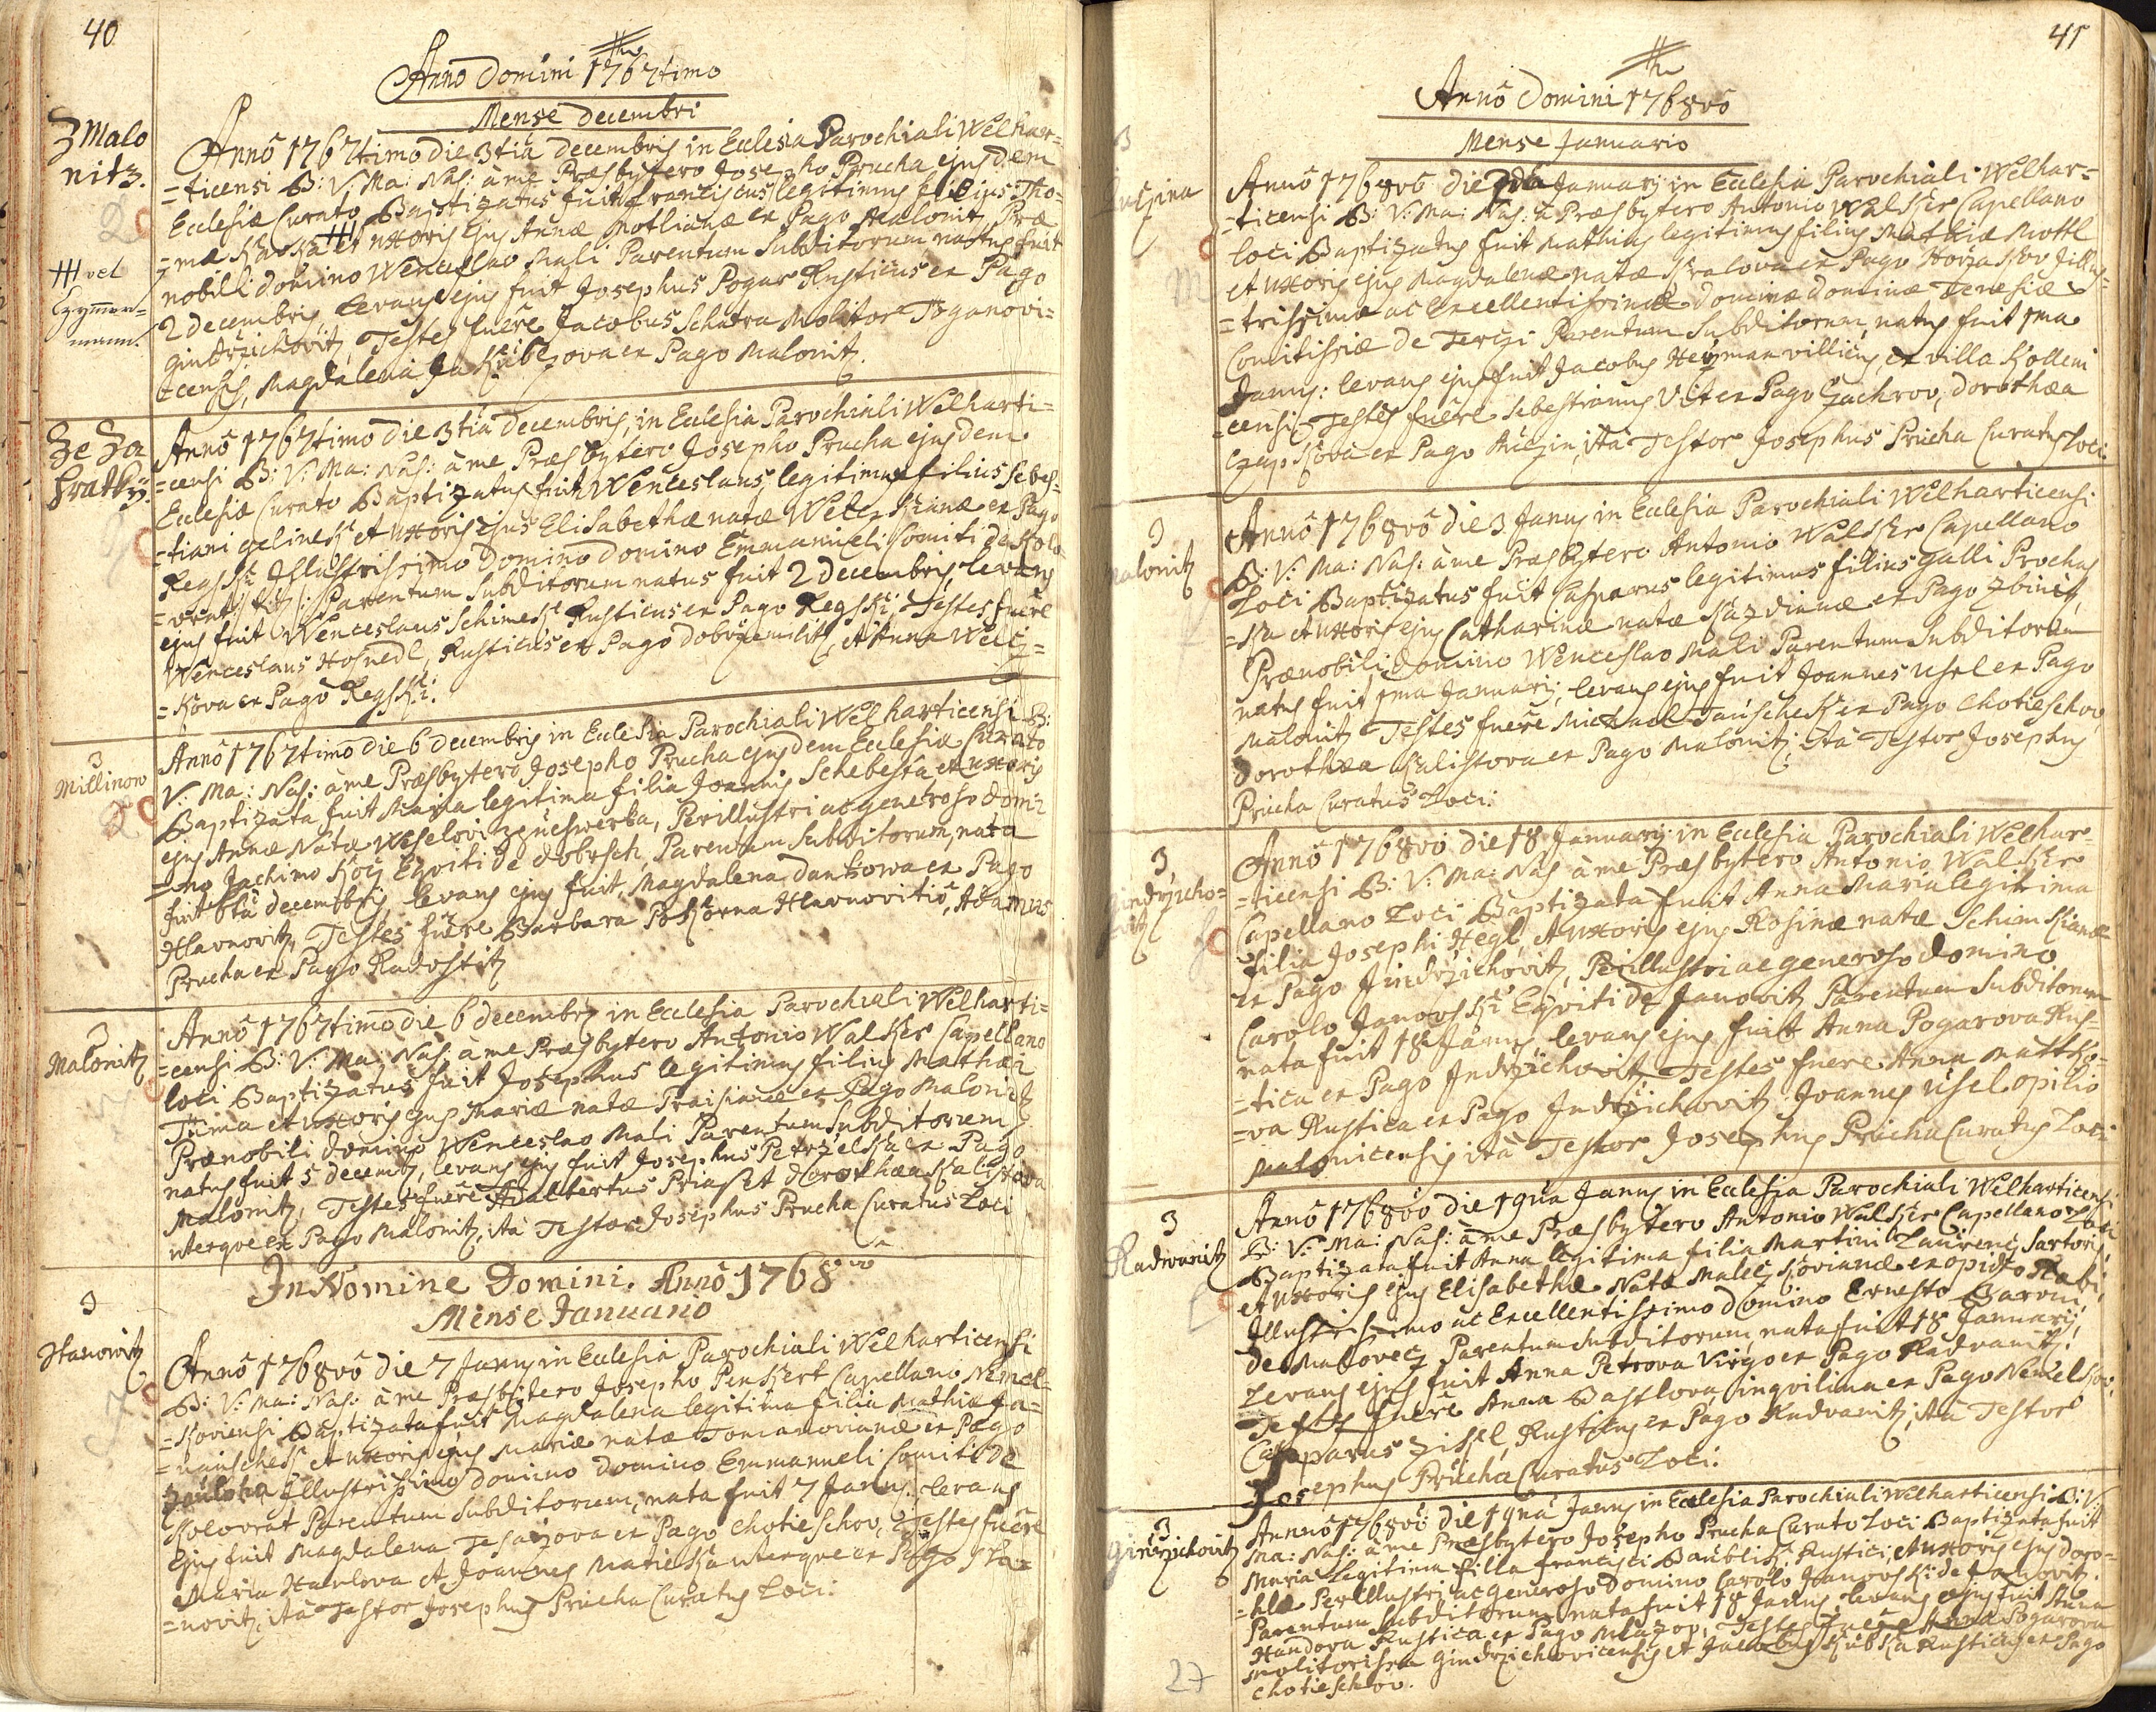 40
Anno Domini 1767timo
Mense Decembri
Z Malo
nitz.
Annô 1767timo die 3tia Decembris in Eclesia Parochiali Welhar=
=ticensi B: V: Ma: Nas: à me Præsbytero Josepho Prucha ejusdem
Eclesiæ Curato Baptizatus fuit Franciscus legitimus filius Tho=
=mæ et uxoris ejus Annæ Motlianæ ex Pago Malonitz Præ
nobili Domino Wenceslao Mali Parentum Subditorum natus fuit
vel
Czymer=
mann.
2 Decembris Levans ejus fuit Josephus Pogar Rusticus ex Pago
Gindrzichovitz, Testes fuêre Jacobus Schatra Molitor Töganovi=
=censis, Magdalena ex Pago Malonitz.
Ze Za
hratky.
Annô 1767timo die 3tia Decembris, in Eclesia Parochiali Welharti=
=censi B: V: Ma: Nas: à me Præsbytero Josepho Prucha ejusdem
Eclesiæ Curato Baptizatus fuit Wenceslaus, legitimus filius Sebes=
=tiani Gelinek et uxoris ejus Elisabethæ natæ ex Pago
Regski Illustrissimo Domino Domino Emmanueli Comiti de Kolo=
=vrat Parentum Subditorum natus fuit 2 Decembris, levans
ejus fuit Wenceslaus Schimek Rusticus ex Pago Regski, Testes fuêre
Wenceslaus Hosnedl, Rusticus ex Pago Dobrzemilitz, et Anna Welcz=
=kova ex Pago Regski.
3
Millinow
Annô 1767timo die 6 Decembris in Eclesia Parochiali Welharticensi B:
V: Ma: Nas: à me Præsbytero Josepho Prucha ejusdem Eclesiæ Curato
Baptizata fuit Maria legitima filia Joannis Schebesta, et uxoris
ejus Annæ Natæ Perillustri ac generoso Domi=
=no Jachimo Kocz Eqviti de Dobrsch, Parentum Subditorum, nata
fuit 6ta Decembris, levans ejus fuit, Magdalena Dankowa ex Pago
Hlavnovitz, Testes fuêre Barbara Pokorna Hlavnovitio, Adamus
Prucha ex Pago Radostitz
3
Malonitz
Annô 1767timo die 6 Decembris in Eclesia Parochiali Welharti=
=censi B: V: Ma: Nas: à me Præsbytero Antonio Walker Capellano
loci Baptizatus fuit Josephus legitimus filius Mathæi
Tuma et uxoris ejus Mariæ natæ ex Pago Malonitz
Prænobili Domino Wenceslao Mali Parentum Subditorum,
natus fuit 5 Decemb, levans ejus fuit Josephus Petrzelka ex Pago
Malonitz, Testes fuêre Adalbertus et Dorothæa Kalistova
uterque ex Pago Malonitz, ità Testor Josephus Prucha Curatus Loci
In Nomine Domini. Annô 1768vo
Mense Januario
3
Stanowitz
Annô 1768vô die 7 Janus in Eclesia Parochiali Welharticensi
B: V: Ma: Nas: à me Præsbÿtero Josepho Penkert Capellano Nemel=
=koviensi Baptizata fuit Magdalena legitima filia Mathiæ Ja=
=nauschek et uxoris ejus Mariæ natæ Tomanovianæ ex Pago
Illustrissimo Domino Domino Emmanueli Comiti de
Kolovrat Parentum Subditorum, nata fuit 7 Janus levans
Ejus fuit Magdalena ex Pago Chotieschov, Testes fuêre
Maria Hawlova et Joannes Matieka uterque ex Pago Sta=
=novitz, ità Testor Josephus Prucha Curatus Loci.
41
Annô Domini 1768vô
Mense Januario
Annô 1768vô die 2da Januarÿ in Eclesia Parochiali Welhar=
=ticensi B: V: Ma: Nas: à Præsbytero Antonio Walker Capellano
loci Baptizatus fuit Mathias legitimus filius Mathiæ Mottl
et uxoris ejus Magdalenæ natæ Kralova ex Pago Illus=
=trissimæ ac Excellentissimæ Dominæ Dominæ Teresiæ
Comitissæ de Terczi Parentum Subditorum, natus fuit 1ma
Janus: levans ejus fuit Jacobus Heÿman villicus, ex villa Kolleni
=censi Testes fuêre Sebestianus Vit ex Pago Czachrov, Dorothæa
Czapkova ex Pago ità Testor Josephus Prucha Curatus Loci
3
Malonitz
Annô 1768vô die 3 Janus in Eclesia Parochiali Welharticensi
B: V: Ma: Nas: à me Præsbÿtero Antonio Walker Capellano
Loci Baptizatus fuit Casparus legitimus filius Galli Prochas
=ka et uxoris ejus Catharinæ natæ ex Pago
Prænobili Domino Wenceslao Mali Parentum Subditorum
natus fuit 1ma Januarÿ, levans ejus fuit Joannes Usel ex Pago
Malonitz Testes fuêre Michael Janschek ex Pago Chotieschov
Dorothæa Kalistova ex Pago Malonitz, ità Testor Josephus
Prucha Curatus Loci.
3
Gindrzcho=
vitz
Annô 1768vô die 18 Januarÿ in Ecclesia Parochiali Welhar=
=ticensi B: V: Ma: Nas: à me Præsbytero Antonio Walker
Capellano Loci Baptizata fuit Anna Maria legitima
filia Josephi Hegl, et uxoris ejus Rosinæ natæ Schimkianæ
ex Pago Jindrzichovitz, Perillustri ac generoso Domino
Carolo Janovski Eqviti de Janovitz Parentum Subditorum
nata fuit 18 Janus levans ejus fuit Anna Pogarova Rus=
=tica ex Pago Jndrzichovitz Testes fuere Anna Mattko=
=va Rustica ex Pago Jndrzichovitz Joannes Usel opilio
Malonicensis ità Testor Josephus Prucha Curatus Loci
3
Radwanitz
Annô 1768vô die 19na Janus in Eclesia Parochiali Welharticensi
B: V: Ma: Nas: à me Præsbytero Antonio Walker Capellano Loci
Baptizata fuit Anna legitima filia Martini Laurenc Sartoris,
et uxoris ejus Elisabethæ Natæ ex opido Rabi,
Illustrissimo ac Excellentissimo Domino Ernesto Baroni
de Malovecz Parentum Subditorum, nata fuit 18 Januarÿ,
Levans ejus fuit Anna Petrova Virgo ex Pago Radvanitz.
Testes fuêre Anna Bastlova, inqvilina ex Pago Nemelkov.
Casparus Zissel, Rusticus ex Pago Radvanitz, ità Testor
Josephus Prucha Curatus Loci.
3
Gindrzichovitz
Annno 1768vô die 19na Janus in Eclesia Parochiali Welharticensi B: V:
Ma: Nas: à me Præsbytero Josepho Prucha Curato Loci Baptizata fuit
Maria Legitima filia Francisci Baublik Rustici, et uxoris ejus Doro=
Perillustri ac generoso Domino Carolo Janovski de Janovitz.
Parentum Subditorum nata fuit 18 Janus, levans ejus fuit Anna
Handova Rustica ex Pago Mlazop, Testes fuêre Anna Pogarova
Molitorissa Gindrzichovicensis et Jacobus Kubka Rusticus ex Pago
Chotieschov.
27